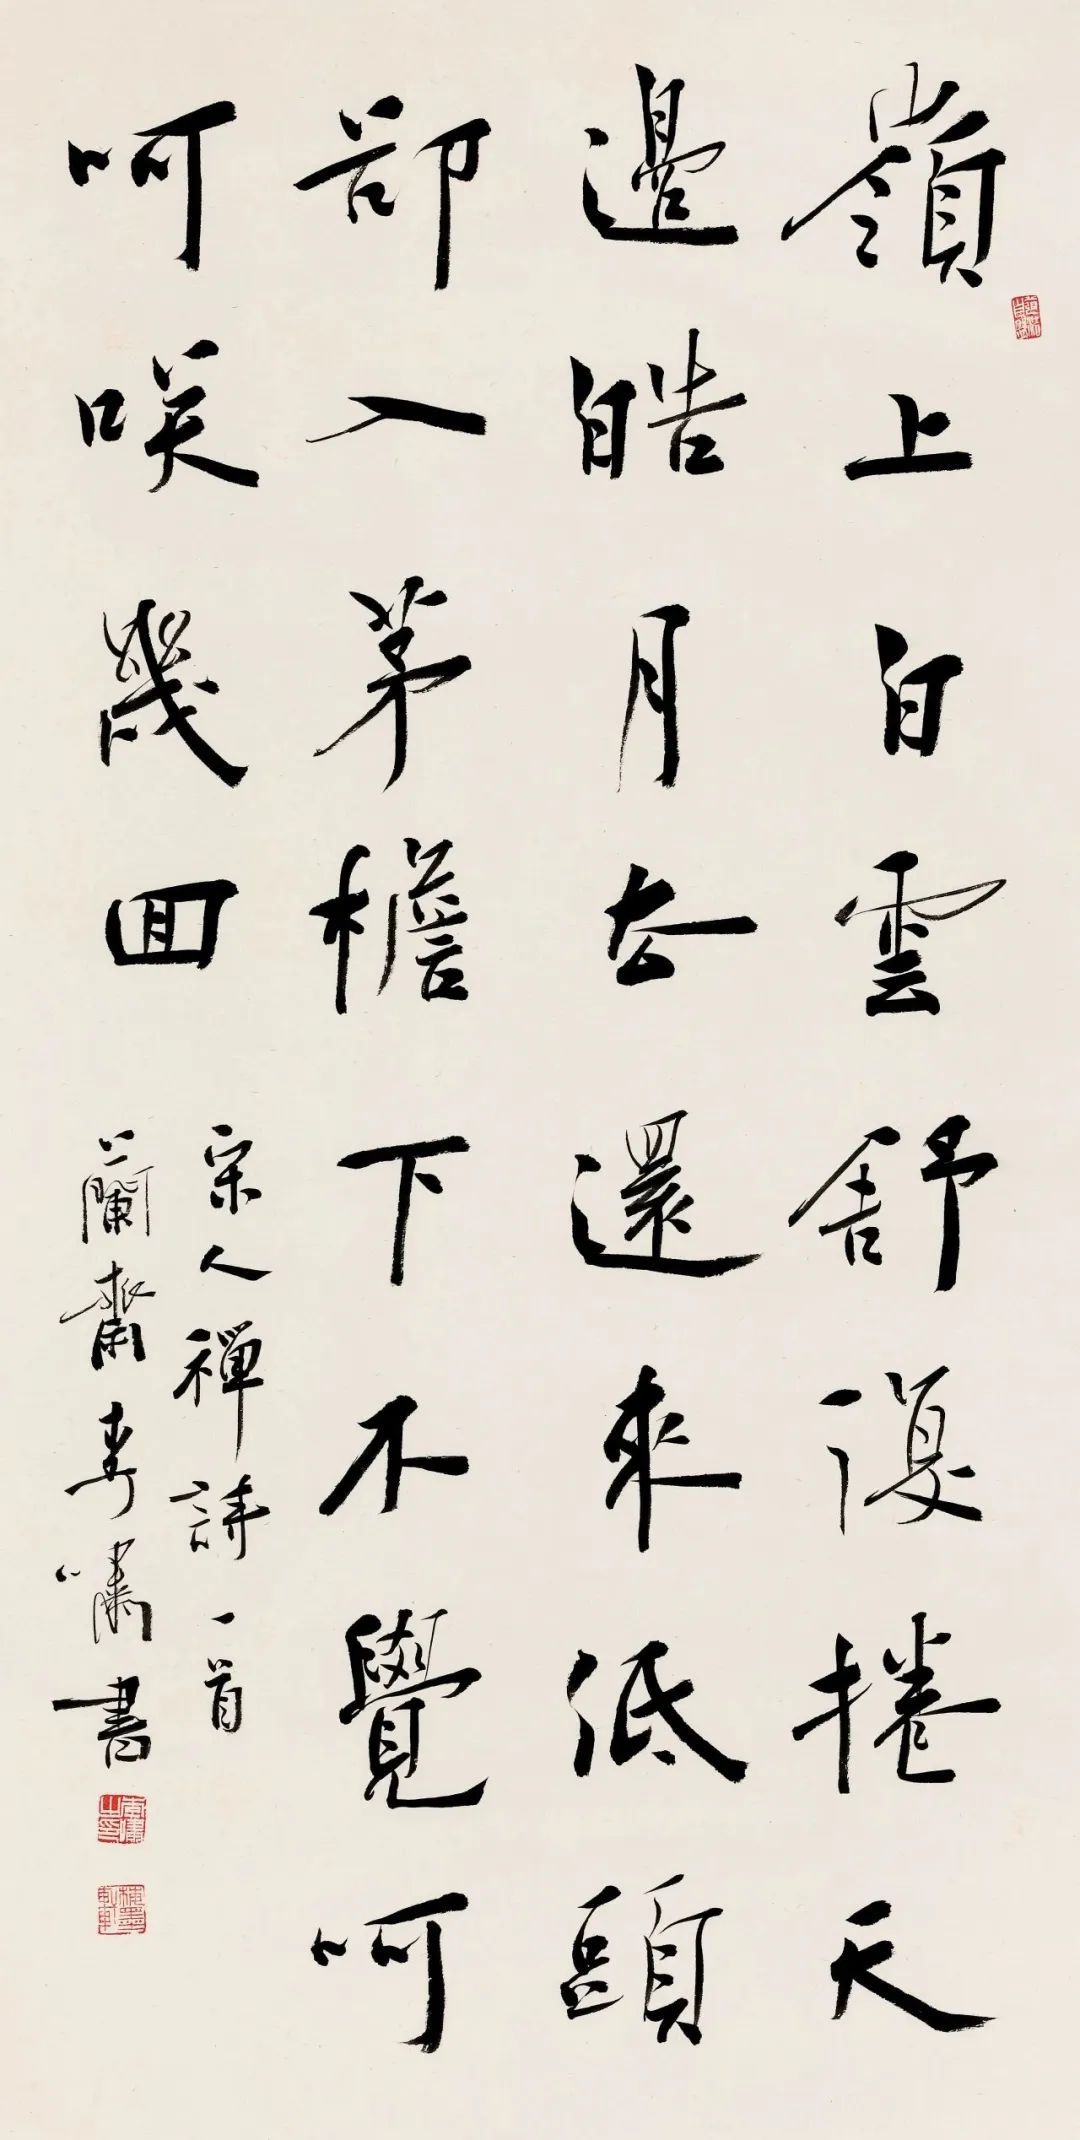 嶺上白雲舒復捲天
邊皓月去還來低頭
卻入茅檐下不覺呵
呵咲幾囬
宋人禪詩一首
蘭齋嘯書